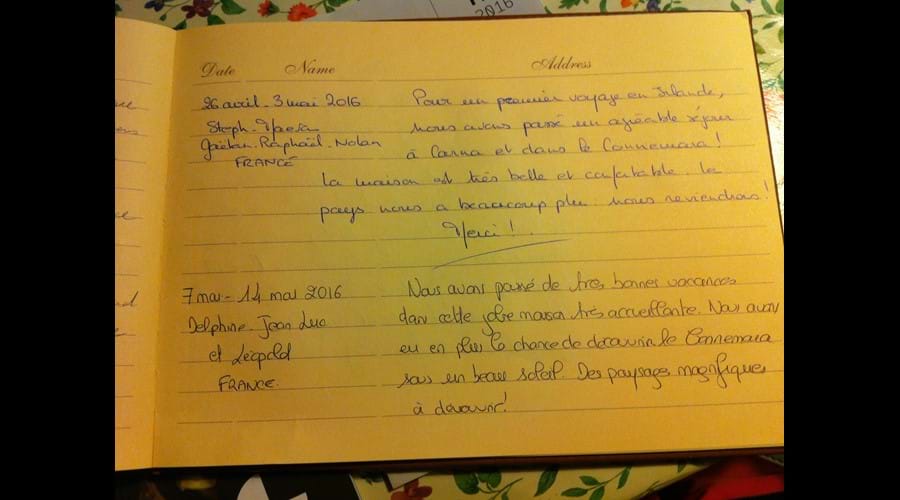 2016
Date Name Address
26 avril - 3 mai 2016
Steph - 
Gaëtan - Raphaël - Nolan
FRANCE
Pour un premier voyage en Irlande,
nous avons passé un agréable séjour
à Carna et dans le Connemara !
La maison est très belle et confortable. Le
pays nous a beaucoup plu. nous reviendrons !
Merci !
7 mai - 14 mai 2016
Delphine - Jean Luc
et Léopold
FRANCE.
Nous avons passé de très bonnes vacances
dans cette jolie maison très accueillante. Nous avons
eu en plus la chance de découvrir le Connemara
sous un beau soleil. Des paysages magnifiques
à découvrir !